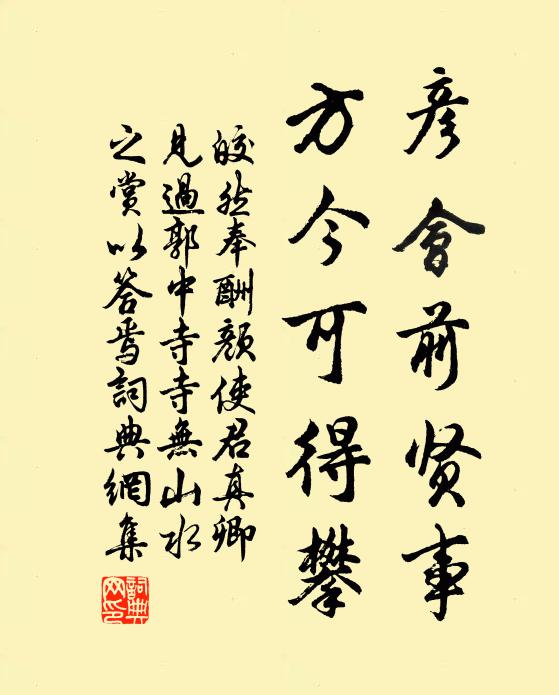 彦會前贤事
方今可得攀
皎然奉酬颜使君真卿
見過郭中寺寺無山水
之賞以答焉詞典網集
詞典網印